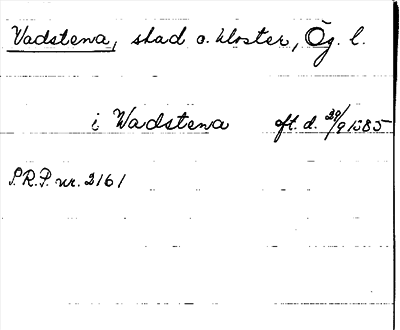 Vadstena, stad o. kloster, Ög. l.
i Wadstena oft. d. 29/9 1385
S.R.P. nr. 2161